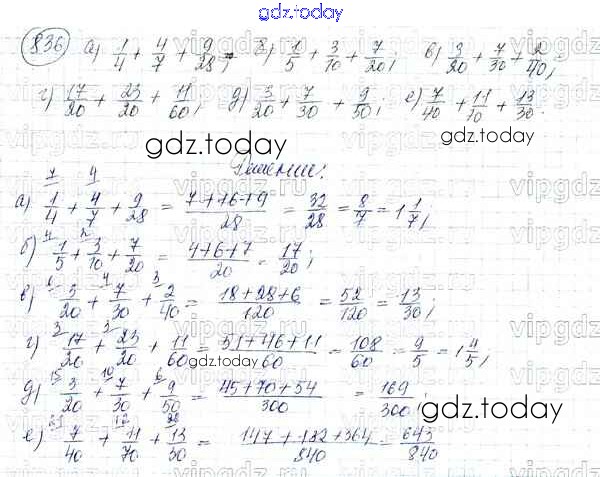 gdz.today
836) а) 1/4 + 4/7 + 9/28; б) 1/5 + 3/10 + 7/20; в) 3/20 + 7/30 + 2/40;
г) 17/20 + 23/20 + 11/60; д) 3/20 + 7/30 + 9/50; е) 7/40 + 11/70 + 13/30.
gdz.today
gdz.today
Решение:
а) 1/4 + 4/7 + 9/28 = 7+16+9/28 = 32/28 = 8/7 = 1 1/7;
б) 1/5 + 3/10 + 7/20 = 4+6+7/20 = 17/20;
в) 3/20 + 7/30 + 2/40 = 18+28+6/120 = 52/120 = 13/30;
г) 17/20 + 23/20 + 11/60 = 51+46+11/60 = 108/60 = 9/5 = 1 4/5;
gdz.today
д) 3/20 + 7/30 + 9/50 = 45+70+54/300 = 169/300;
gdz.today
е) 7/40 + 11/70 + 13/30 = 147+132+364/840 = 643/840